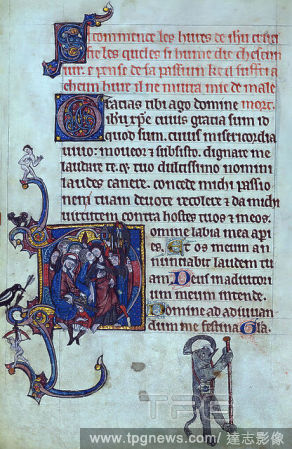 commence les hures de ihu crist
fie les queles si hume die chescun
iur. e pense de sa passiun ke il suffri a
cheun hure il ne murra mie de male
mort.
facias tibi ago domine
ihu xpe cuius gracia sum id
quod sum. cuius misericordia
uiuo: moueor & subsisto. dignare me
laudare te. & tuo dulcissimo nomini
laudes canere. concede michi passio
nem tuam deuote recolere & da michi
uirtutem contra hostes tuos & meos.
omine labia mea apri
es. Et os meum an
nunciabit laudem tu
am. Deus in adiutori
um meum intende.
Domine ad adiuuan
dum me festina Gla.
TPG
www.tpgnews.com / 達志影像